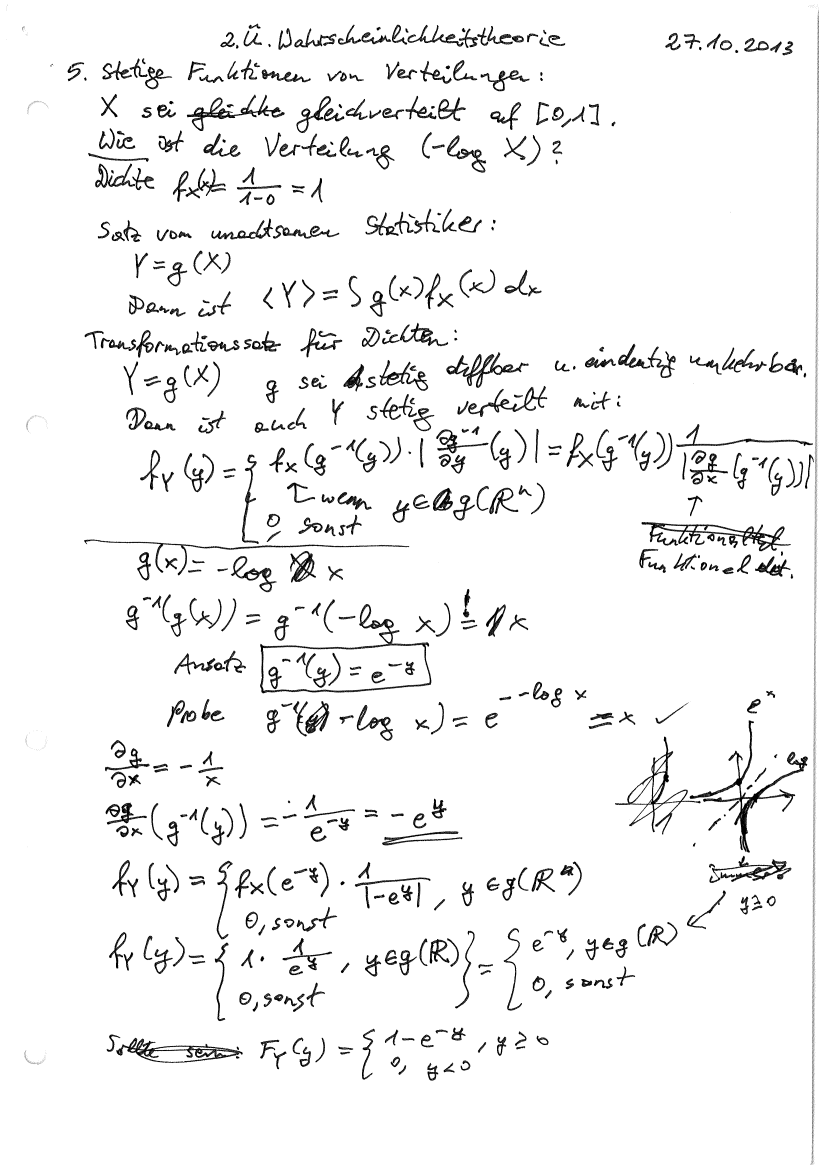 2. Ü. Wahrscheinlichkeitstheorie 27.10.2013
5. Stetige Funktionen von Verteilungen:
X sei gleichverteilt auf [0,1].
Wie ist die Verteilung (-log X)?
Dichte f_X(x) = 1/(1-0) = 1
Satz vom unachtsamen Statistiker:
Y = g(X)
Dann ist <Y> = ∫ g(x) f_X(x) dx
Transformationssatz für Dichten:
Y = g(X) g sei stetig diffbar u. eindeutig umkehrbar.
Dann ist auch Y stetig verteilt mit:
f_Y(y) = { f_X(g⁻¹(y)) · |∂g⁻¹/∂y (y)| = f_X(g⁻¹(y)) 1/|∂g/∂x (g⁻¹(y))|
↑ wenn y ∈ g(ℝⁿ)
0, sonst
↑
Funktionaldet.
g(x) = -log x
g⁻¹(g(x)) = g⁻¹(-log x) =! x
Ansatz g⁻¹(y) = e^-y
Probe g⁻¹(-log x) = e^--log x = x ✓
e^x
log
∂g/∂x = - 1/x
∂g/∂x (g⁻¹(y)) = - 1/e^-y = - e^y
f_Y(y) = { f_X(e^-y) · 1/|-e^y|, y ∈ g(ℝ)
0, sonst
y ≥ 0
f_Y(y) = { 1 · 1/e^y, y ∈ g(ℝ) } = { e^-y, y ∈ g(ℝ)
0, sonst 0, sonst
Sollte sein: F_Y(y) = { 1 - e^-y, y ≥ 0
0, y < 0